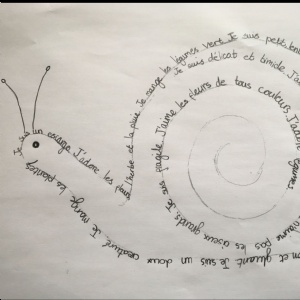 Je suis un escargo J'adore les fleurs
l'herbe et la pluie Je mange les légumes vert Je suis petit, lent
Je suis délicat et timide J'a
Je suis fragile J'aime les fleurs de tous couleurs J'adore
légumes
n'aime pas les oiseux grands.
et gluant Je suis un doux
creature. Je mange les plantes